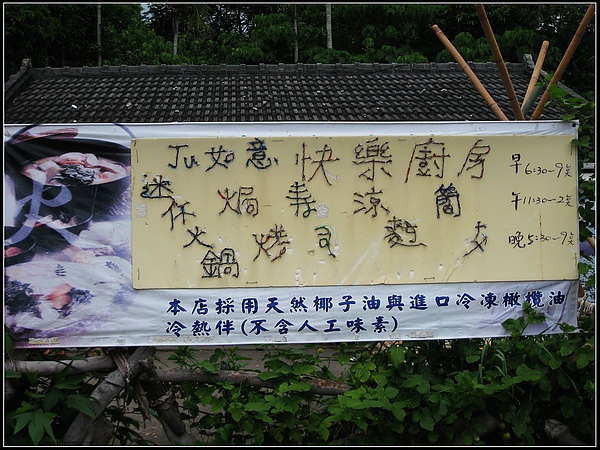 Ju如意 快樂廚房
迷你火鍋
焗烤
壽司
涼麵
簡
早6:30-9
午11:30-2
晚5:30-9
火
本店採用天然椰子油與進口冷凍橄欖油
冷熱伴(不含人工味素)